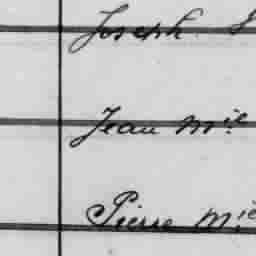 Joseph
Jean Mie
Pierre Mie